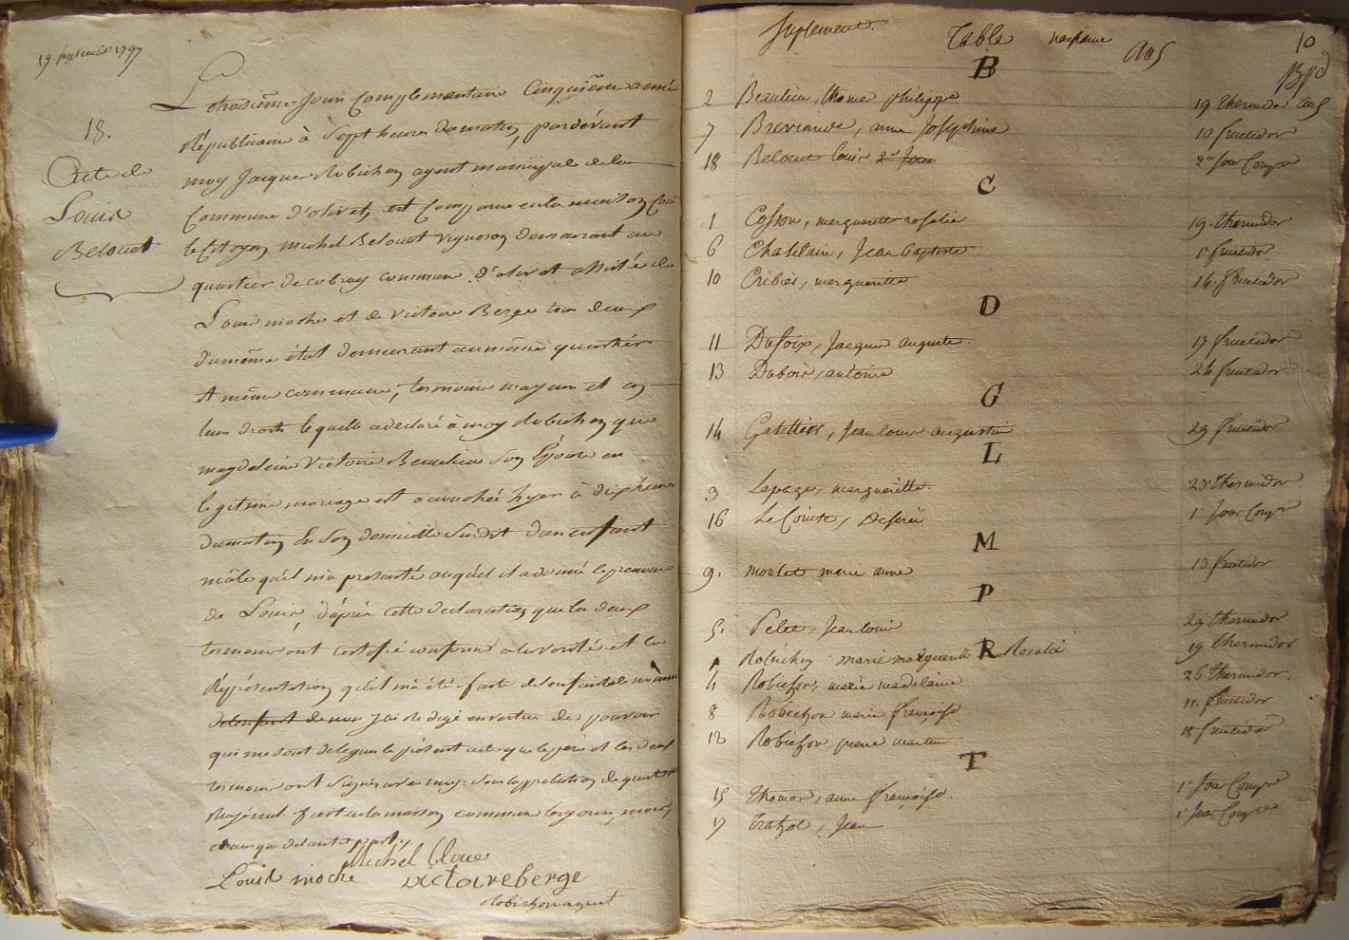 18.
Acte de
Louis
Belouet
Le troisieme jour Complementaire Cinquieme année
Républicaine à Sept heures du matin, pardevant
moy Jacques Robichon agent municipal de la
Commune d'olivet, est Comparu en la maison
le Citoyen michel Belouet vigneron demeurant au
quartier de commune d'olivet assité de
Louis moche et de victoire Berge tous deux
du même état demeurant au même quartier
et même commune, temoins majeurs et
leurs droits lequelle a declaré à moy Robichon que
magdeleine victoire Beaulieu Son Epouse en
legitime mariage est accouchée hyer à dix heures
du matin en Son domicille Susdit d'un enfant
mâle qu'il m'a presenté auquel il a donné le prenom
de Louis, d'après cette declaration que les deux
temoins ont certifié conforme a la verité et la
Représentation qu'il m'a été faite de
de l'enfant J'ai redigé en vertu des pouvoirs
qui me sont delegués le présent acte que le père et les deux
temoins ont Signé avec moy
fait en la maison commune les jours, mois
et an que d'autre part.
Michel
Louis moche victoire berge
Robichon agent
Suplement. Table an 5
10
B
2 Beaulieu, thomas philippe 19 thermidor an 5
7 anne Josephine 10 fructidor
18 Belouet louis 2e Jour Comp
C
1 Cosson, marguerite rosalie 19 thermidor
6 Chatelain, Jean baptiste 1er fructidor
10 marguerite 16 fructidor
D
11 Dufoix, Jacques auguste. 17 fructidor
13 Dubois, antoine 26 fructidor
G
14 Gatellier, Jean louis augustin 29 fructidor
L
3 Lepage, marguerite. 23 thermidor
16 Le Comte, Desiré 1er Jour Comp
M
9. marie anne 13 fructidor
P
5. Pelet, Jean louis 29 thermidor
R
Robichon marie marguerite Rosalie 19 thermidor
4 Robichon, marie madelaine 26 thermidor.
8 Robichon marie françoise 11. fructidor
12 Robichon pierre martin 18 fructidor
T
15 thomas, anne françoise. 1er Jour Comp
17 Jean 1er Jour Comp